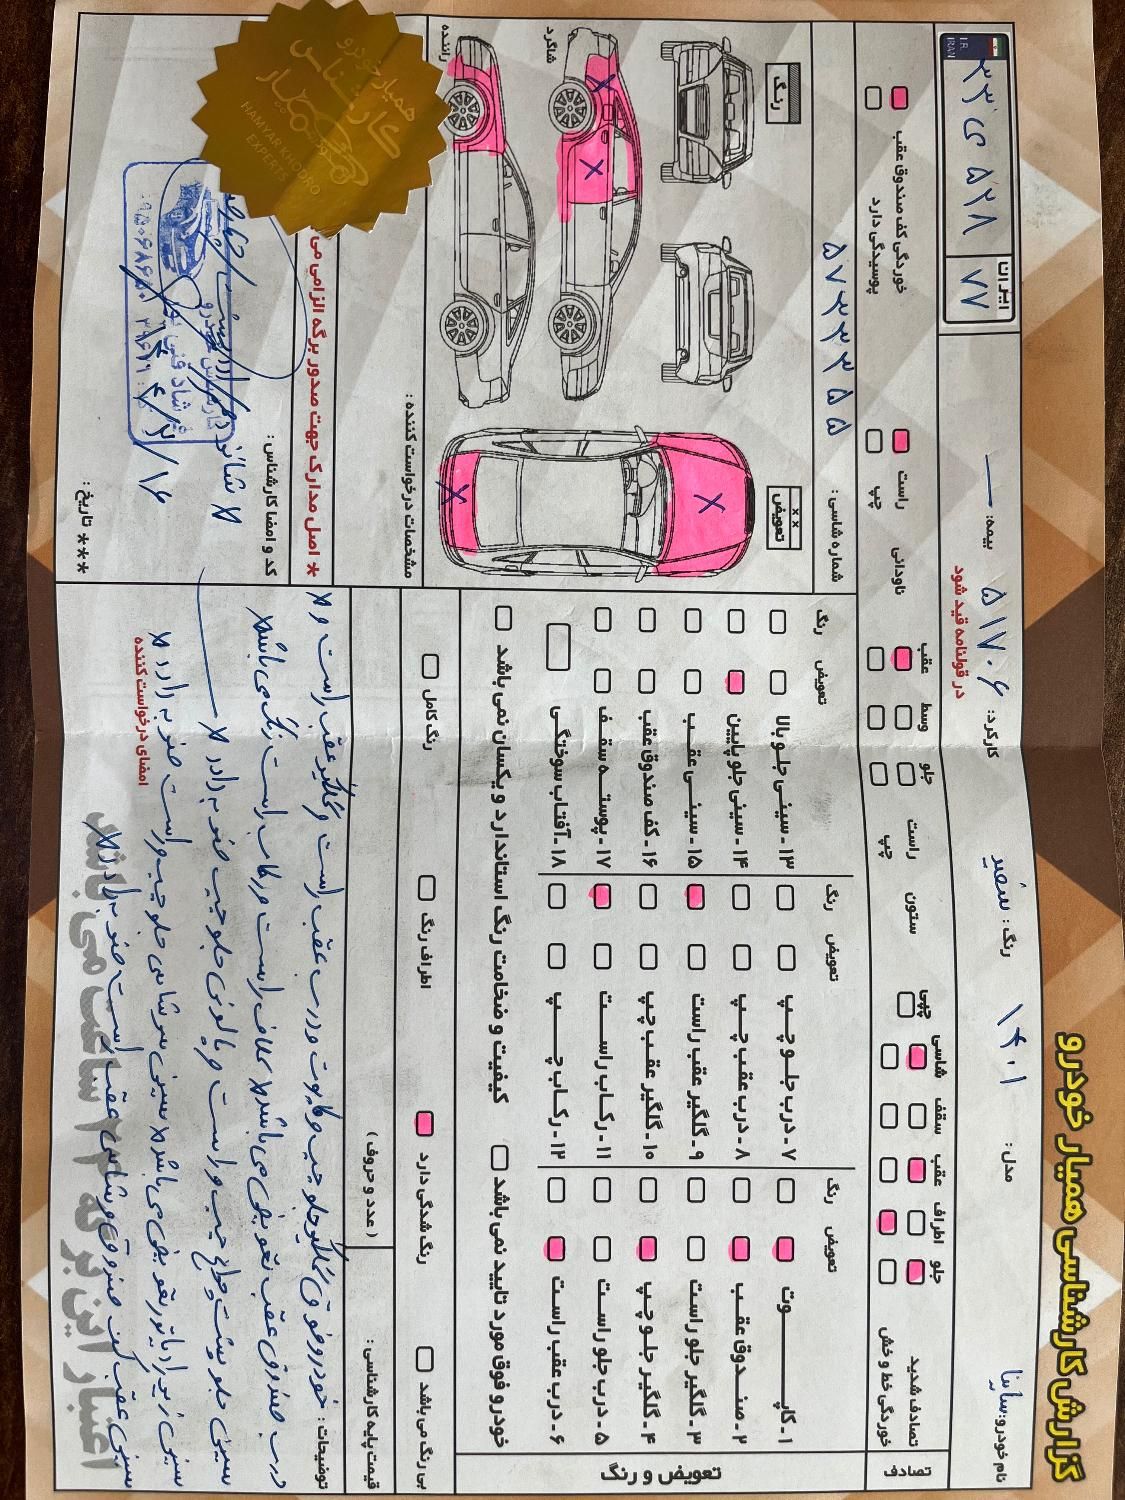 گزارش کارشناسی همیار خودرو
نام خودرو: ساینا
مدل: ۱۴۰۱
رنگ: سفید
کارکرد: ۵۱۷۰۶
در قولنامه قید شود
بیمه: —
۲۲ ی ۵۲۸
ایران
۷۷
I.R.
IRAN
تصادف
تصادف شدید
خوردگی خط و خش
جلو
اطراف
عقب
سقف
شاسی
چپی
ستون
راست
چپ
جلو
وسط
عقب
ناودانی
راست
چپ
خوردگی کف صندوق عقب
پوسیدگی دارد
تعویض و رنگ
تعویض
رنگ
۱- کاپوت
۲- صندوق عقب
۳- گلگیر جلو راست
۴- گلگیر جلو چپ
۵- درب جلو راست
۶- درب عقب راست
تعویض
رنگ
۷- درب جلو چپ
۸- درب عقب چپ
۹- گلگیر عقب راست
۱۰- گلگیر عقب چپ
۱۱- رکاب راست
۱۲- رکاب چپ
تعویض
رنگ
۱۳- سینی جلو بالا
۱۴- سینی جلو پایین
۱۵- سینی عقب
۱۶- کف صندوق عقب
۱۷- پوسته سقف
۱۸- آفتاب سوختگی
خودرو فوق مورد تایید نمی باشد
کیفیت و ضخامت رنگ استاندارد و یکسان نمی باشد
بی رنگ می باشد
رنگ شدگی دارد
اطراف رنگ
رنگ کامل
شماره شاسی:
۵۷۳۳۳۵۵
رنگ
تعویض
شاگرد
راننده
مشخصات درخواست کننده:
* اصل مدارک جهت صدور برگه الزامی می
کد و امضا کارشناس:
*** تاریخ:
۱۶
قیمت پایه کارشناسی:
( عدد و حروف )
توضیحات: خودرو فوق گلگیر جلو چپ و کاپوت و درب عقب راست و گلگیر عقب راست و
درب صندوق عقب تعویض می باشد گلاف راست و رکاب راست رنگ می باشد
سینی جلو پشت چراغ چپ و راست و پالونی جلو چپ ضربه دارد
سینی زیر رادیاتور تعویض می باشد سینی سرشاسی جلو چپ و راست ضربه دارد
سینی عقب کف صندوق و شاسی عقب راست ضربه دارد
امضای درخواست کننده
اعتبار این برگه ۲۴ ساعت می باشد
همیار خودرو
کارشناس
همیار
HAMYARKHODRO
EXPERTS